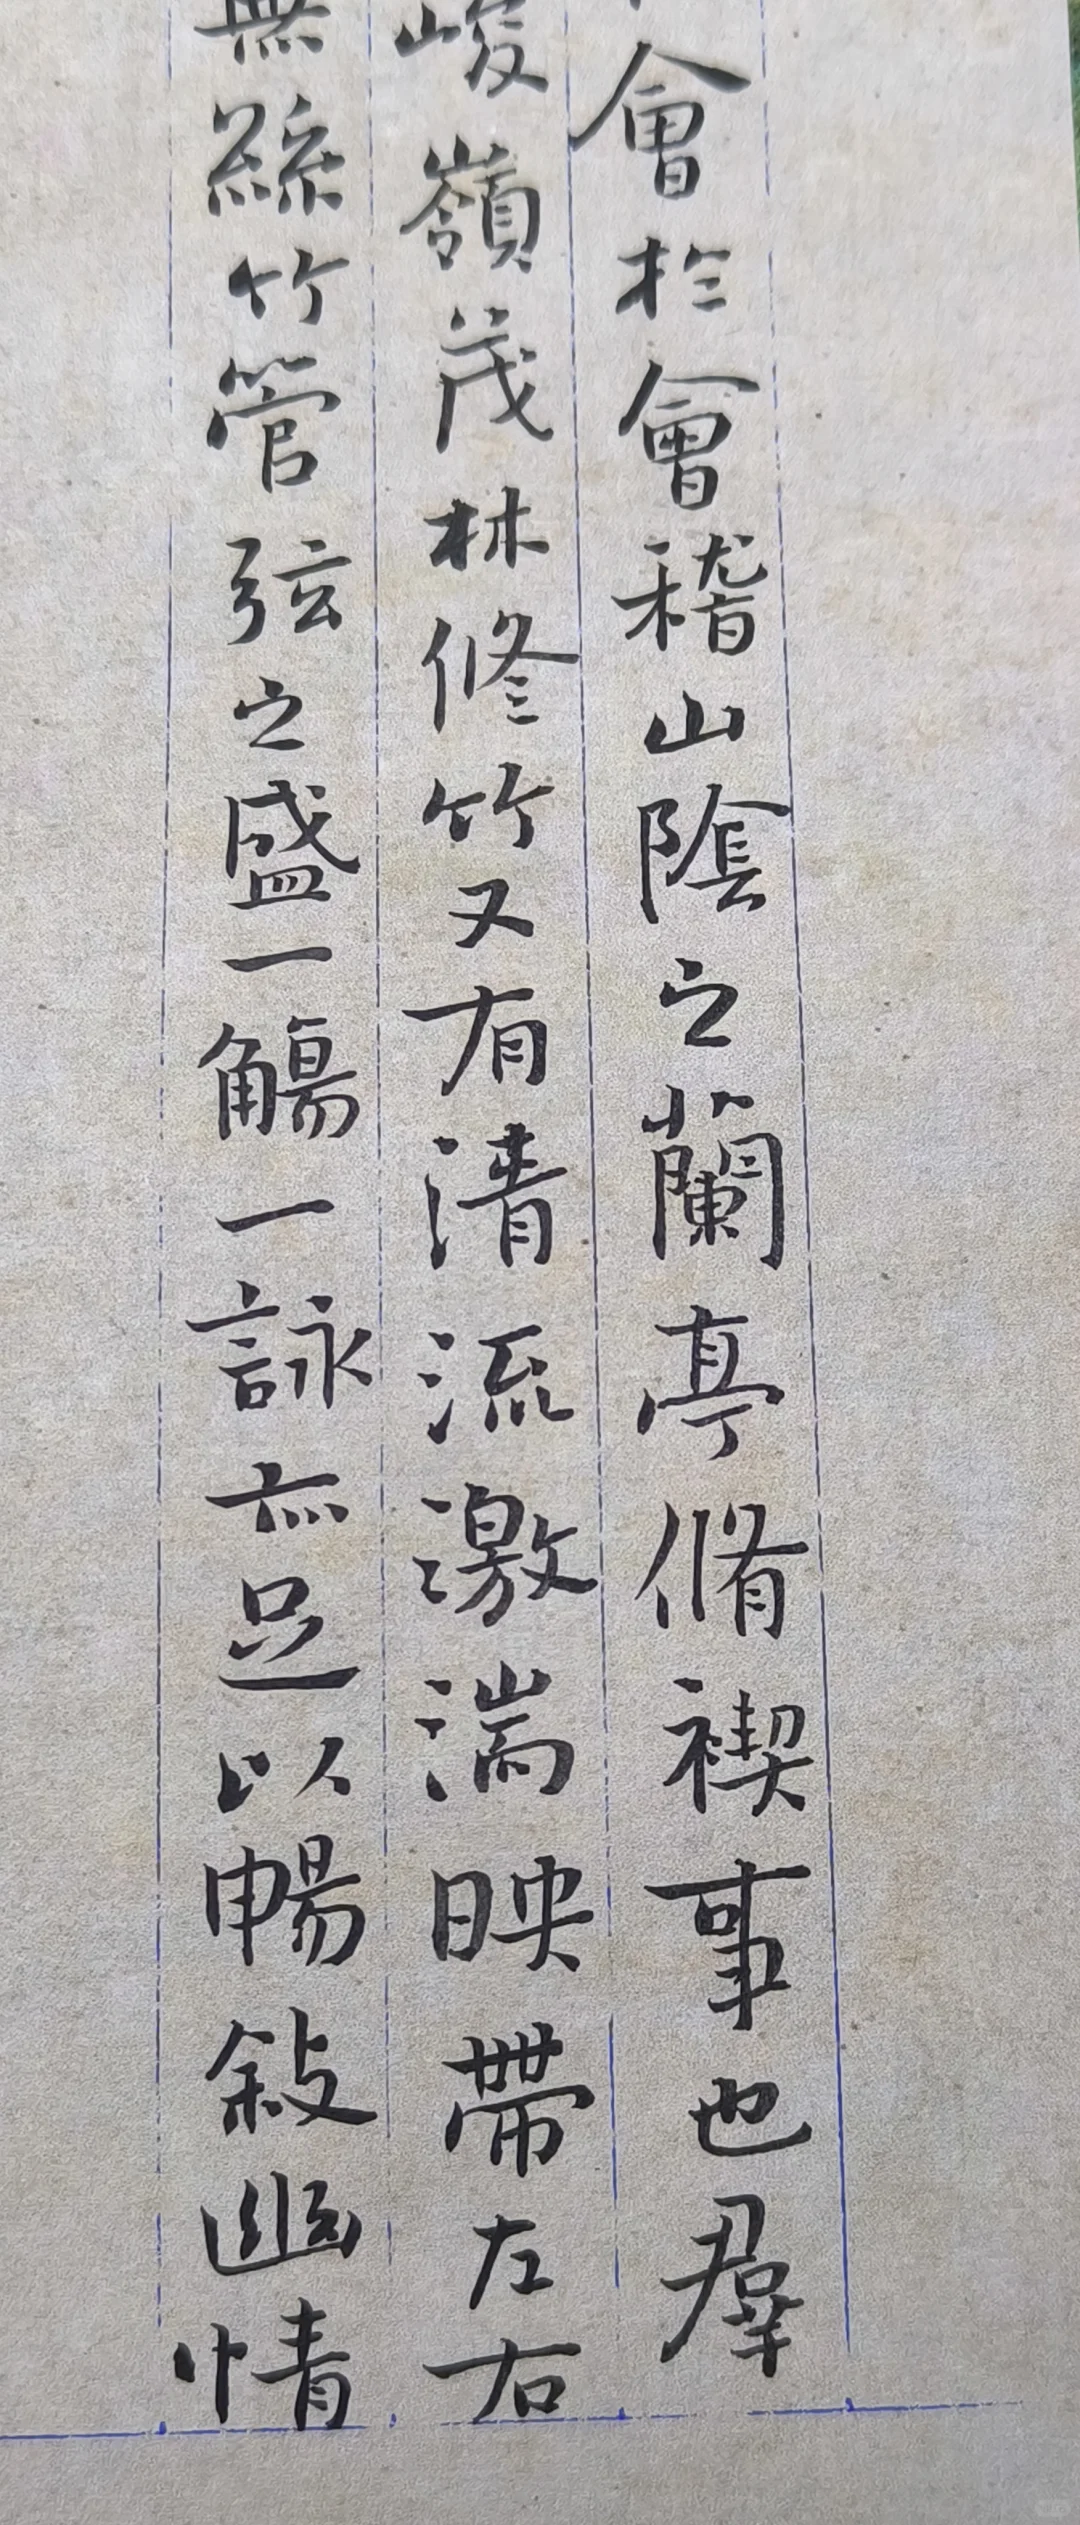 會於會稽山陰之蘭亭脩禊事也羣
峻嶺茂林修竹又有清流激湍映帶左右
無絲竹管弦之盛一觴一詠亦足以暢敍幽情